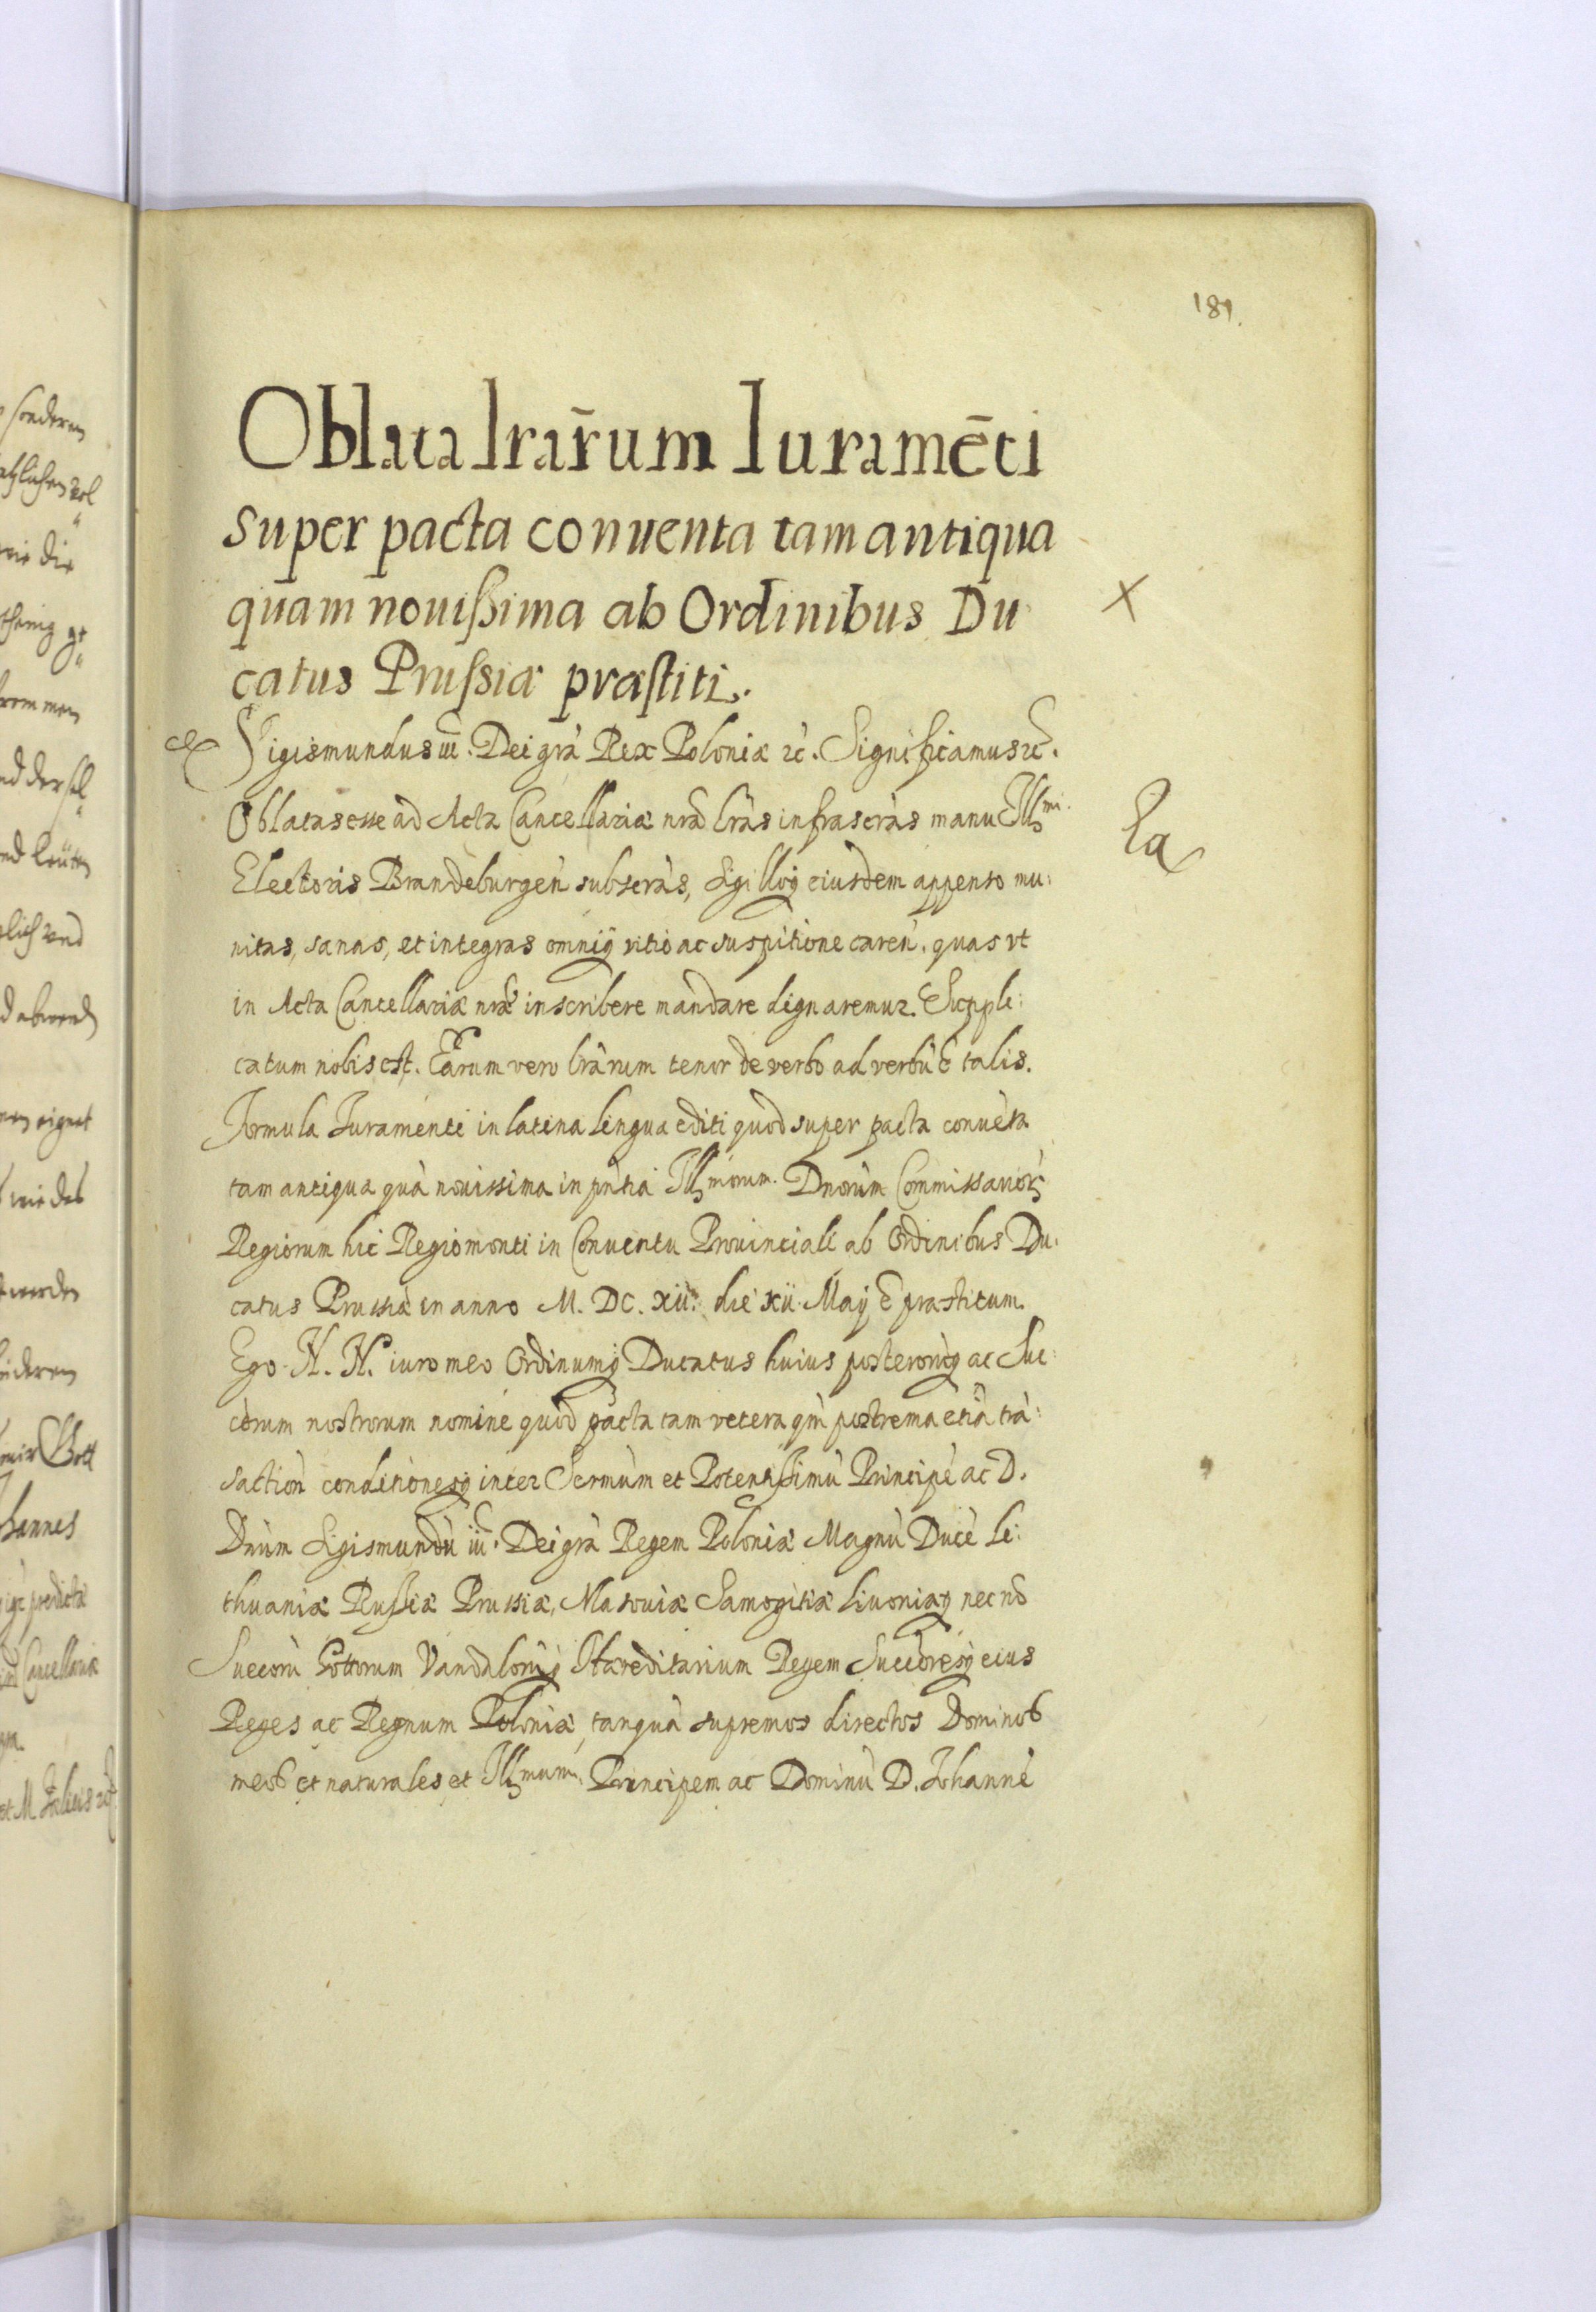 181.
Oblata lrar̃um Iuramēti
super pacta conuenta tam antiqua
quam nouißima ab Ordinibus Du
catus Prussiæ præstiti.
Sigismundus iii. Dei grà Rex Poloniæ ꝛc̃. Significamus ꝛc̃.
Oblatas esse ad Acta Cancellariæ nræ lràs infrascràs manu Illmi.
Electoris Brandeburgen̄ subscràs, Sigilloq̢ eiusdem appenso mu:
nitas, sanas, et integras omniq̢ vitio ac suspitione caren̄. quas vt
in Acta Cancellariæ nræ inscribere mandare dignaremur. Supple:
catum nobis est. Earum vero lrãrum tenor de verbo ad verbũ ẽ talis.
Formula Iuramenti in latina lingua editi quod super pacta convẽta
tam antiqua quà novissima in pñtia Illmorum. Dnorùm Commissarioꝝ
Regiorum hic Regiomonti in Conventu Prouinciali ab Ordinibus Du:
catus Prussiæ in anno M. DC. xii.ᵐᵒ die xii. Maÿ ẽ præstitum.
Ego N. N. iuro meo Ordinumq̢ Ducatus huius posterorũq̢ ac Suc:
cõrum nostrorum nomine quod pacta tam vetera qm̀ postrema etiã trã:
saction̄ conditionesq̢ inter Sermùm et Potentissimũ Principẽ ac D.
Dnùm Sigismundũ iii. Dei grà Regem Poloniæ Magnũ Ducẽ Li:
thuaniæ Russiæ Prussiæ, Masouiæ Samogitiæ Liuoniæq̢ nec nõ
Suecorũ Gottorum Vandalorũq̢ Hæreditarium Regem Succõresq̢ eius
Reges ac Regnum Poloniæ, tanquà supremos directos Dominos
meos et naturales, et Illmum. Principem ac Dominũ D. Iohannẽ